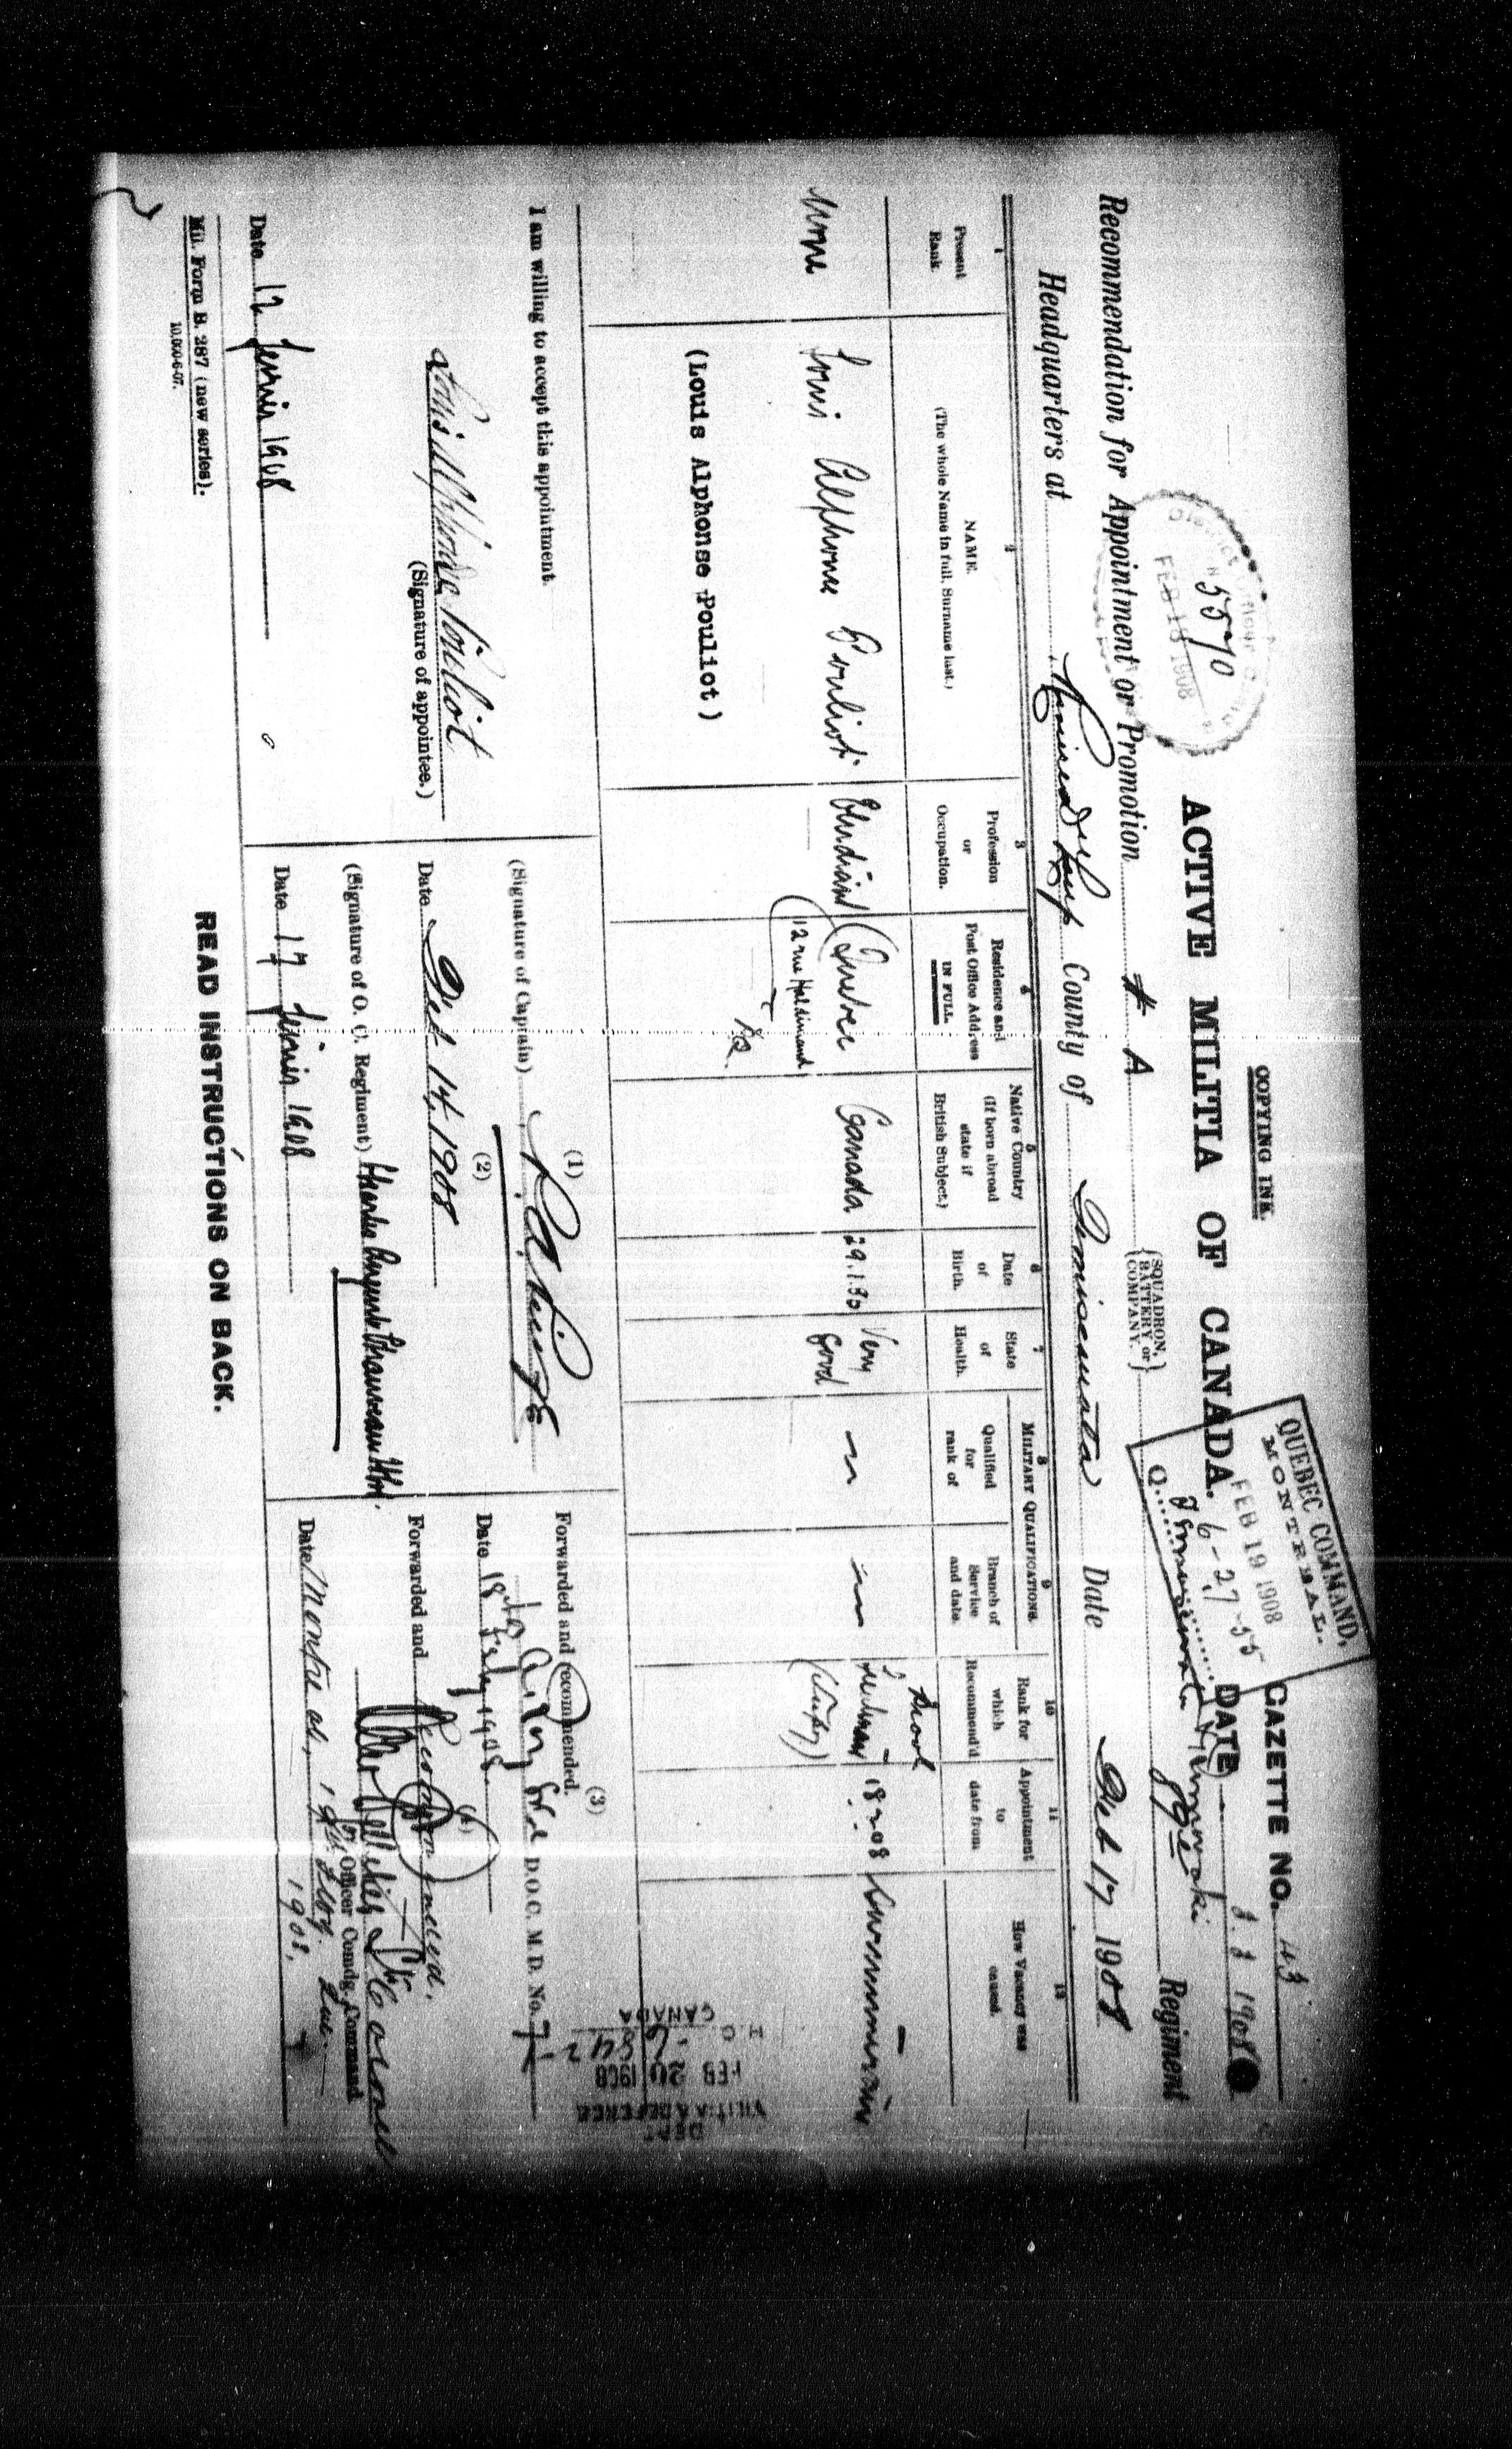 COPYING INK.
QUEBEC COMMAND,
MONTREAL.
FEB 19 1908
6-27-55
Q.
GAZETTE NO. 43
DATE 1908
5570
FEB 18 1908
ACTIVE MILITIA OF CANADA.
Recommendation for Appointment or Promotion # A {SQUADRON, BATTERY or COMPANY.} Regiment
Headquarters at County of Temiscouata Date Feb 17 1908
1
Present
Rank.
2
NAME.
(The whole Name in full. Surname last.)
3
Profession
or
Occupation.
4
Residence and
Post Office Address
IN FULL.
5
Native Country
(If born abroad
state if
British Subject.)
6
Date
of
Birth.
7
State
of
Health.
MILITARY QUALIFICATIONS.
8
Qualified
for
rank of
9
Branch of
Service
and date.
10
Rank for
which
Recommend'd
11
Appointment
to
date from
12
How Vacancy was
caused.
None Louis Alphonse Pouliot Etudiant (Quebec Canada 29.1.90 Very good 18-2-08
12 rue Haldimand
(Louis Alphonse Pouliot)
DEPT
MILITIA & DEFENCE
FEB 20 1908
H.Q. 6842
CANADA
I am willing to accept this appointment.
Louis Alphonse Pouliot
(Signature of appointee.)
Date 12 fevrier 1908
(1)
(Signature of Captain)
(2)
Date Feb. 14, 1908
(Signature of O. C. Regiment)
Date 17 fevrier 1908
(3)
Forwarded and recommended.
D.O.C. M.D. No. 7
Date 18 Feby 1908.
(4)
Forwarded and
Officer Comdg. Command
Date Montreal, 1908.
Mil. Form B. 287 (new series).
10,000-6-07.
READ INSTRUCTIONS ON BACK.